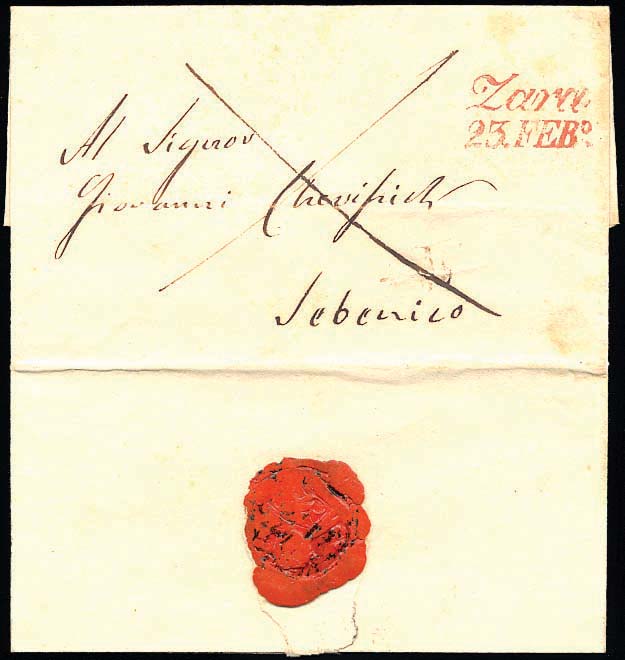 Zara
23. FEBº.
Al Signor
Giovanni
Sebenico